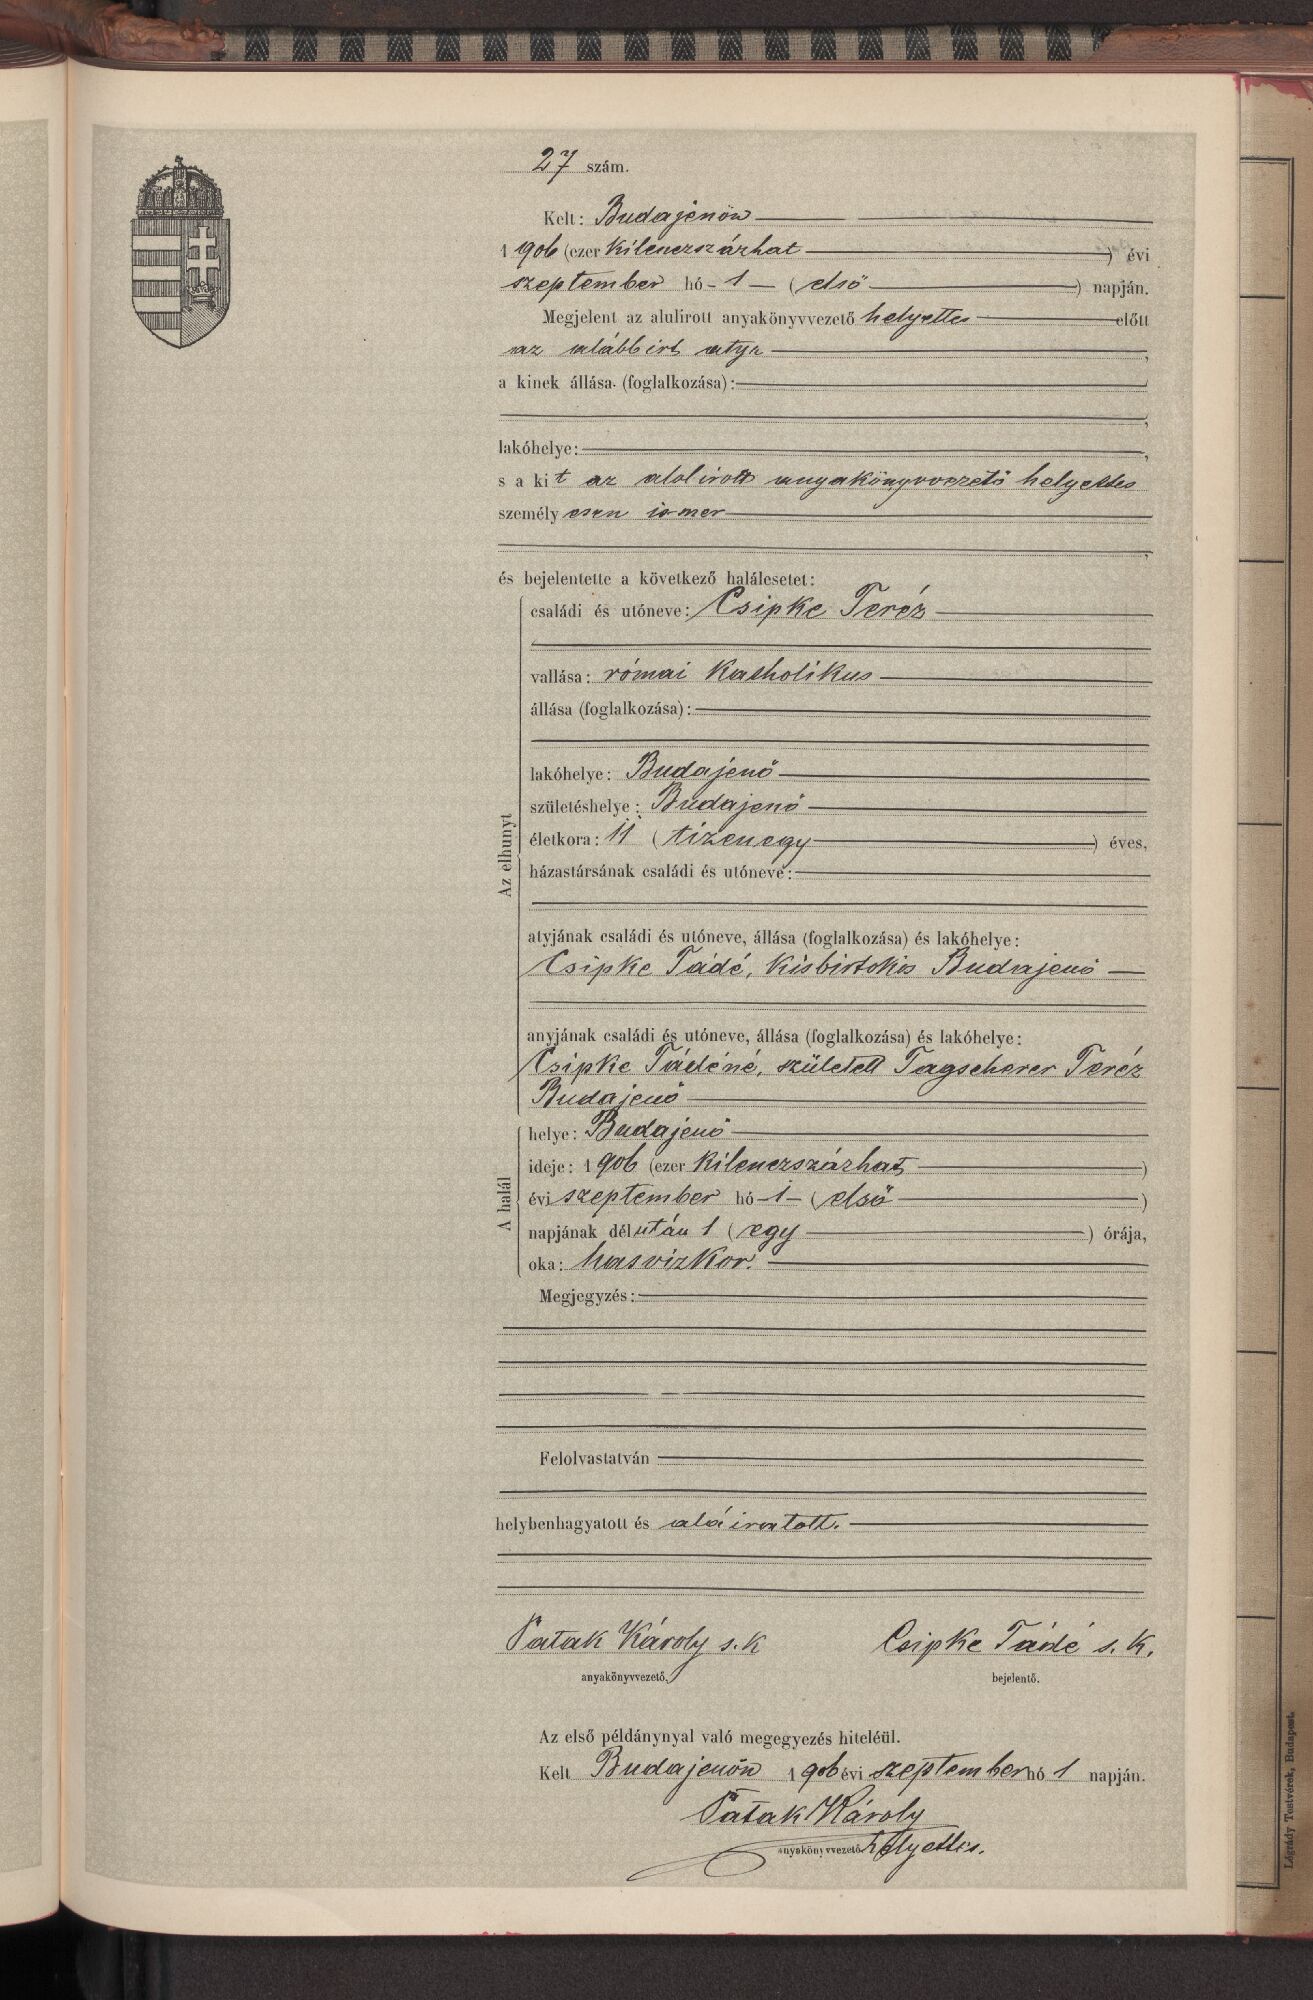 27 szám.
Kelt: Budajenőn
1906 (ezer kilenczszázhat) évi
szeptember hó 1 (első) napján.
Megjelent az alulirott anyakönyvvezető helyettes előtt
az alábbirt atya,
a kinek állása (foglalkozása):
lakóhelye:
s a kit az alolirott anyakönyvvezető helyettes
személyesen ismer
és bejelentette a következő halálesetet:
Az elhunyt
családi és utóneve: Csipke Teréz
vallása: római katholikus
állása (foglalkozása):
lakóhelye: Budajenő
születéshelye: Budajenő
életkora: 11 (tizenegy) éves,
házastársának családi és utóneve:
atyjának családi és utóneve, állása (foglalkozása) és lakóhelye:
Csipke Tádé, kisbirtokos Budajenő
anyjának családi és utóneve, állása (foglalkozása) és lakóhelye:
Csipke Tádéné, született Tagscherer Teréz
Budajenő
A halál
helye: Budajenő
ideje: 1906 (ezer kilenczszázhat)
évi szeptember hó 1 (első)
napjának délután 1 (egy) órája,
oka: hasvizkor.
Megjegyzés:
Felolvastatván
helybenhagyatott és aláiratott.
Patak Károly s. k Csipke Tádé s. k.
anyakönyvvezető, bejelentő.
Az első példánynyal való megegyezés hiteléül.
Kelt Budajenőn 1906 évi szeptember hó 1 napján.
Patak Károly
anyakönyvvezető helyettes.
Légrády Testvérek, Budapest.